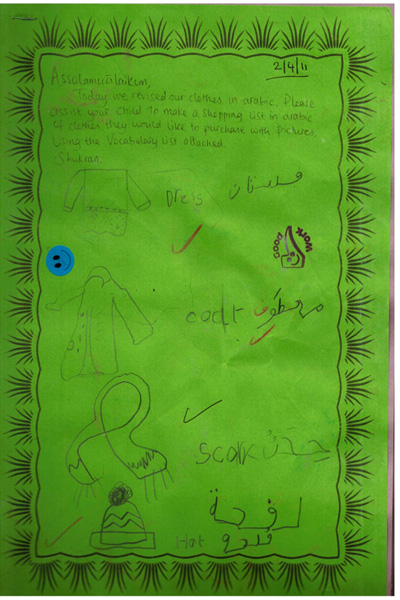 2/4/11
Assalamu'alaikum,
Today we revised our clothes in arabic. Please
assist your child to make a shopping list in arabic
of clothes they would like to purchase with pictures.
Using the vocabulary list attached.
Shukran.
Dress فستان
GOOD WORK
coat
Scark
لفحة
Hat